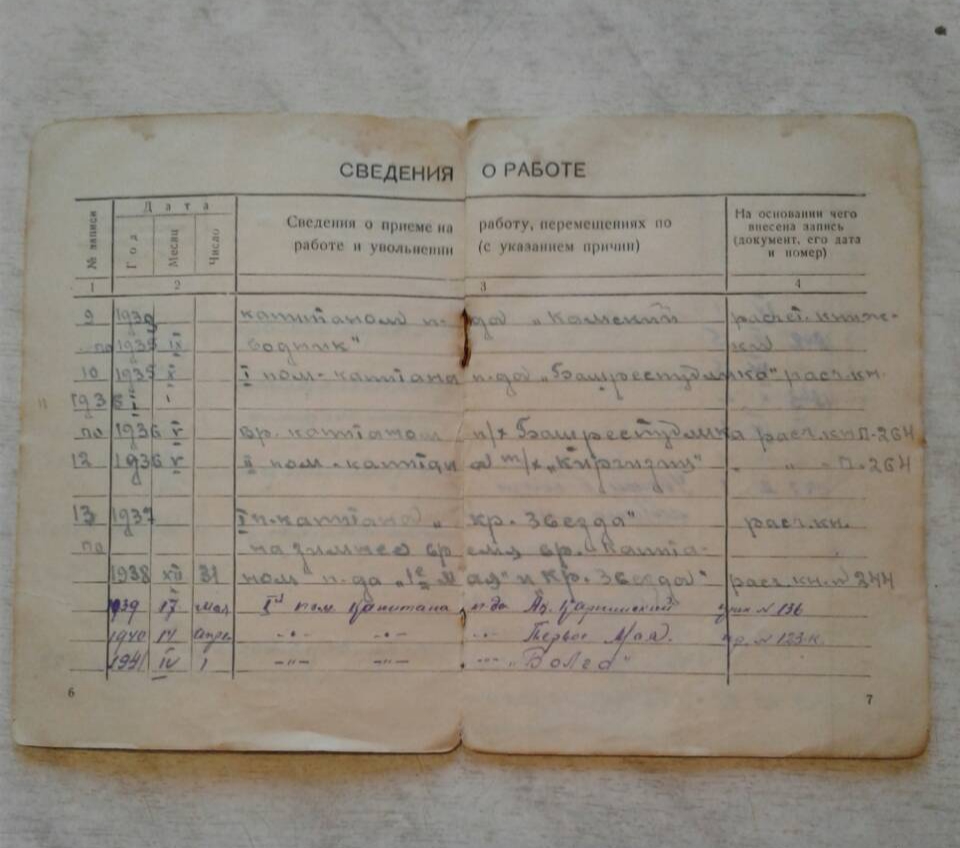 СВЕДЕНИЯ О РАБОТЕ
№ записи
Дата
Год
Месяц
Число
Сведения о приеме на работу, перемещениях по
работе и увольнении (с указанием причин)
На основании чего
внесена запись
(документ, его дата
и номер)
1 2 3 4
9 193 капитаном п-да „Камский расчет. книж-
по 1935 IX водник" ки
10 1935 I пом. капитана п-да „Башреспублика" расч. кн.
1936 I
по 1936 V вр. капитаном п/х Башреспублика расч. кн П-264
12 1936 V II пом. капитана т/х „Киргизия" " " - П-264
13 1937 I п. капитана „кр. Звезда" расч. кн.
по на зимнее время вр. капита-
1938 XII 31 ном п-да „1е Мая" и Кр. Звезда" расч. кн. п 244
1939 17 мая Iй пом. Капитана п-да № 136
1940 14 апрел -"- -"- -"- Первое Мая. № 123-к.
1941 IV 1 -"- -"- -"- „Волга"
6
7